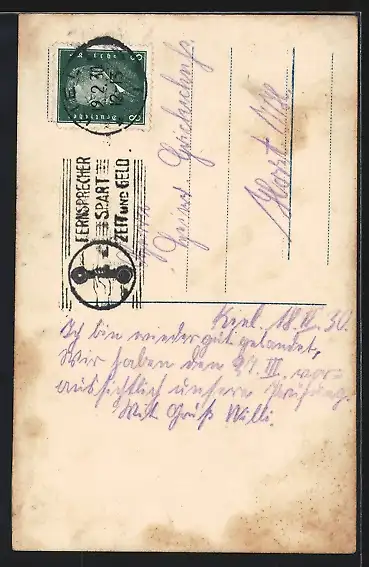 8 Deutsches Reich 8
19.2.30
FERNSPRECHER
SPART
ZEIT und GELD
Kiel. 18.II.30.
Ich bin wieder gut gelandet,
Wir haben den 27. III. vor-
aussichtlich unsere Prüfung.
Mit Gruß Willi.
Horst